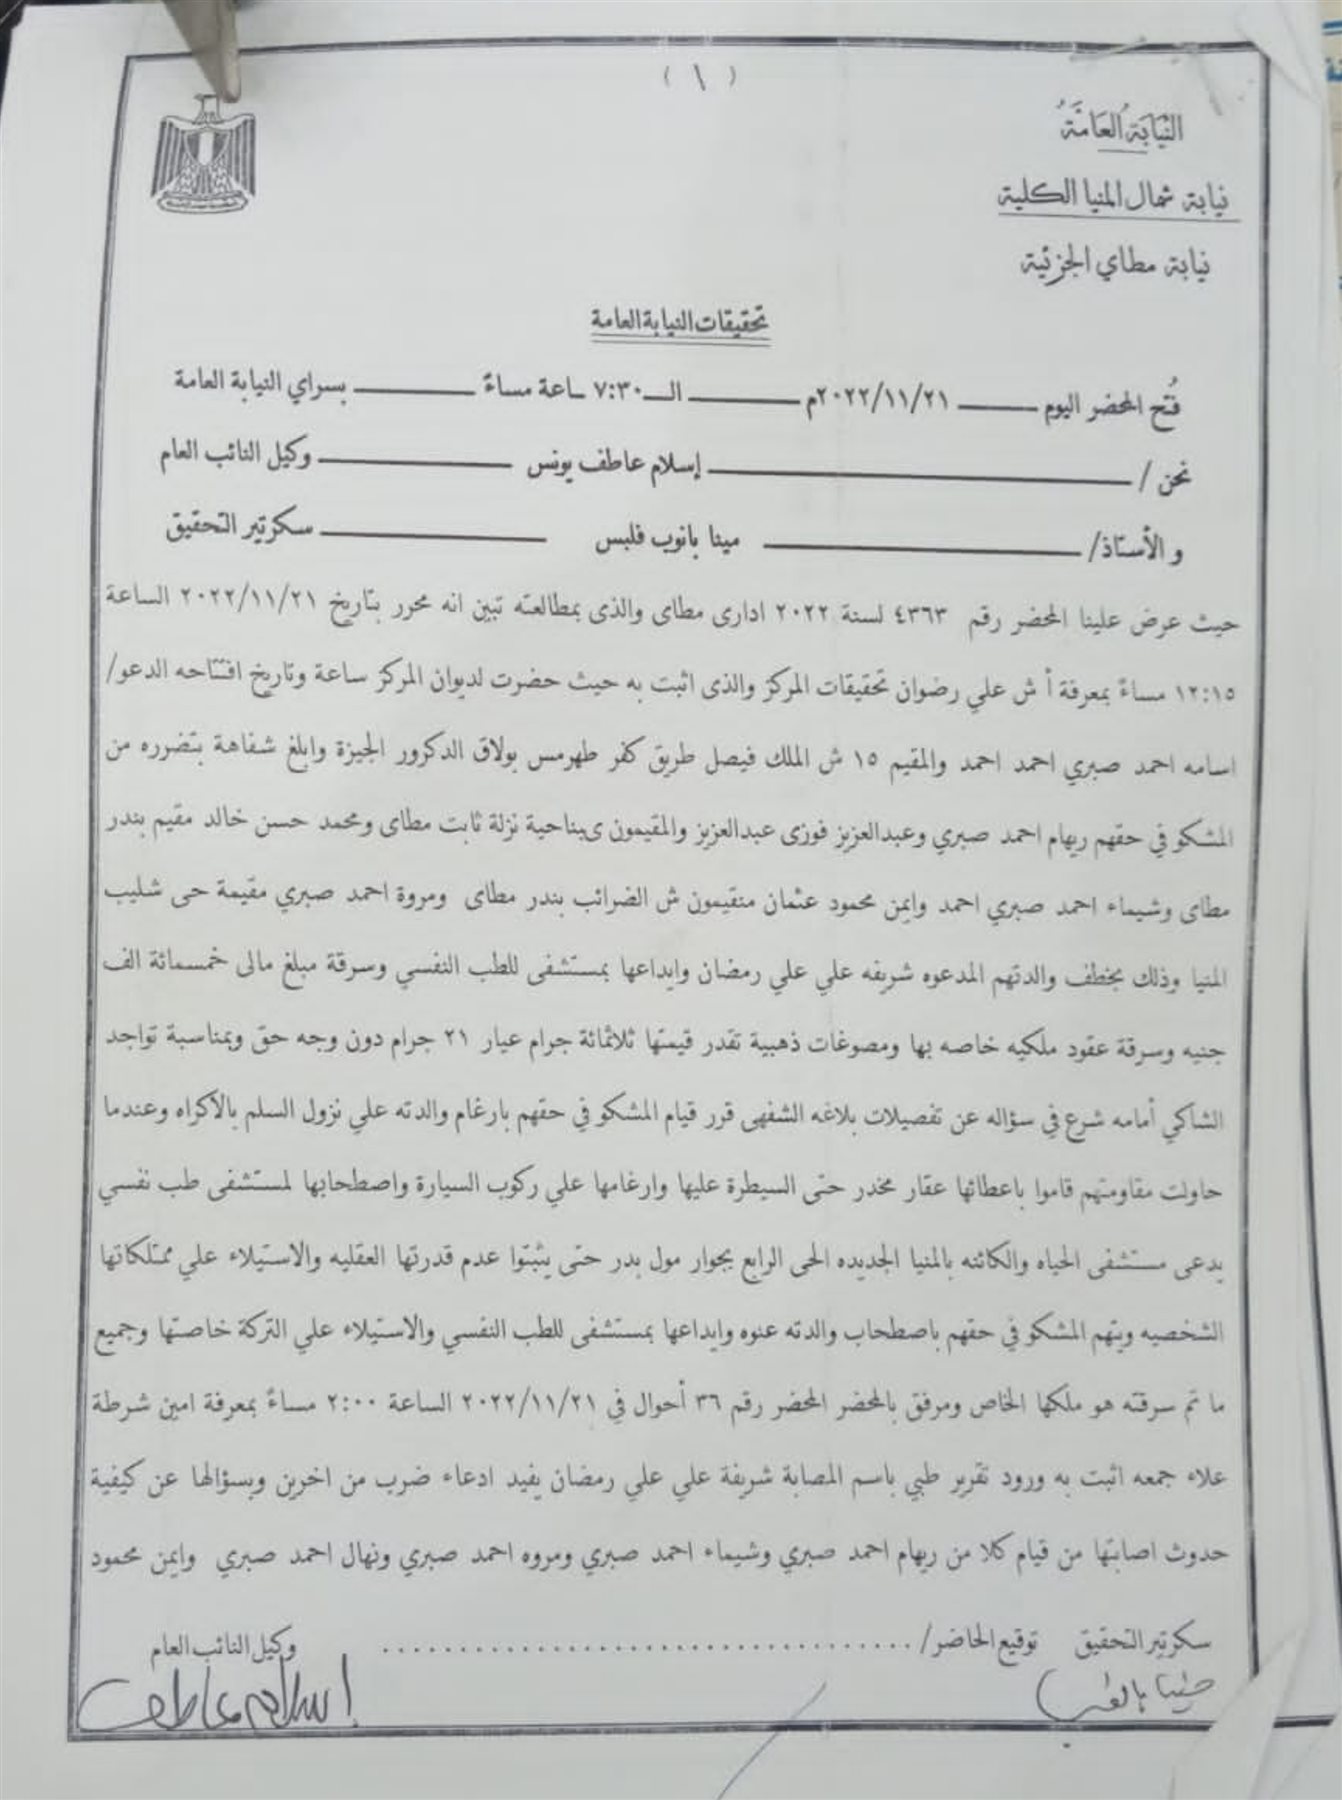 ( ١ )
النيابة العامة
نيابة شمال المنيا الكلية
نيابة مطاي الجزئية
تحقيقات النيابة العامة
فُتح المحضر اليوم ـــــ ٢٠٢٢/١١/٢١م ـــــ الـــ ٧:٣٠ ساعة مساءً ـــــ بسراي النيابة العامة
نحن / ـــــ إسلام عاطف يونس ـــــ وكيل النائب العام
و الأستاذ/ ـــــ مينا بانوب فلبس ـــــ سكرتير التحقيق
حيث عرض علينا المحضر رقم ٤٣٦٣ لسنة ٢٠٢٢ ادارى مطاى والذى بمطالعته تبين انه محرر بتاريخ ٢٠٢٢/١١/٢١ الساعة
١٢:١٥ مساءً بمعرفة أ ش علي رضوان تحقيقات المركز والذى اثبت به حيث حضرت لديوان المركز ساعة وتاريخ افتتاحه الدعو/
اسامه احمد صبري احمد احمد والمقيم ١٥ ش الملك فيصل طريق كفر طهرمس بولاق الدكرور الجيزة وابلغ شفاهة بتضرره من
المشكو في حقهم ريهام احمد صبري وعبدالعزيز فوزى عبدالعزيز والمقيمون ىبناحية نزلة ثابت مطاى ومحمد حسن خالد مقيم بندر
مطاى وشيماء احمد صبري احمد وايمن محمود عثمان منقيمون ش الضرائب بندر مطاى ومروة احمد صبري مقيمة حى شليب
المنيا وذلك بخطف والدتهم المدعوه شريفه علي علي رمضان وايداعها بمستشفى للطب النفسي وسرقة مبلغ مالى خمسمائة الف
جنيه وسرقة عقود ملكيه خاصه بها ومصوغات ذهبية تقدر قيمتها ثلاثمائة جرام عيار ٢١ جرام دون وجه حق وبمناسبة تواجد
الشاكي أمامه شرع في سؤاله عن تفصيلات بلاغه الشفهى قرر قيام المشكو في حقهم بارغام والدته علي نزول السلم بالاكراه وعندما
حاولت مقاومتهم قاموا باعطائها عقار مخدر حتى السيطرة عليها وارغامها علي ركوب السيارة واصطحابها لمستشفى طب نفسي
يدعى مستشفى الحياه والكائنه بالمنيا الجديده الحى الرابع بجوار مول بدر حتى يثبتوا عدم قدرتها العقليه والاستيلاء علي ممتلكاتها
الشخصيه ويتهم المشكو في حقهم باصطحاب والدته عنوه وايداعها بمستشفى للطب النفسي والاستيلاء علي التركة خاصتها وجميع
ما تم سرقته هو ملكها الخاص ومرفق بالمحضر المحضر رقم ٣٦ أحوال في ٢٠٢٢/١١/٢١ الساعة ٢:٠٠ مساءً بمعرفة امين شرطة
علاء جمعه اثبت به ورود تقرير طبي باسم المصابة شريفة علي علي رمضان يفيد ادعاء ضرب من اخرين وبسؤالها عن كيفية
حدوث اصابتها من قيام كلا من ريهام احمد صبري وشيماء احمد صبري ومروه احمد صبري ونهال احمد صبري وايمن محمود
سكرتير التحقيق توقيع الحاضر/ ................................... وكيل النائب العام
إسلام عاطف